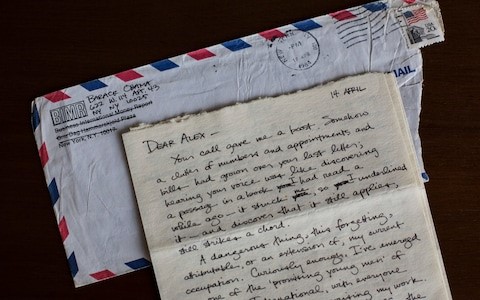 BARACK OBAMA
622 W. 114 APT. 43
NY NY 10025
BIMR
Business International Money Report
One Dag Hammarskjold Plaza
New York, N.Y. 10017
1984
MAIL
14 APRIL
DEAR ALEX -
Your call gave me a boost. Somehow
a clutter of numbers and appointments and
bills had grown over your last letter;
hearing your voice was like discovering
a passage in a book I had read a
while ago - it struck me, so I underlined
it - and discover that it still applies,
still strikes a chord.
A dangerous thing, this forgetting,
attributable, or an extension of, my current
occupation. Curiously enough, I've emerged
one of the "promising young men" of
International, with everyone
my work.